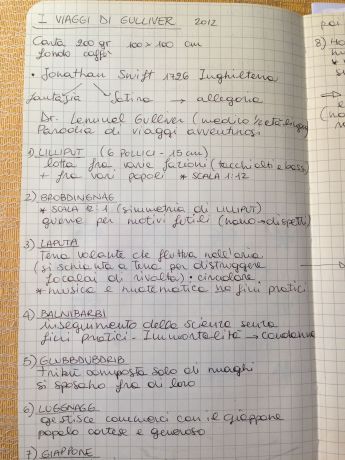 I VIAGGI DI GULLIVER 2012
Carta 200 gr 100x100 cm
fondo caffè
• Jonathan Swift 1726 Inghilterra
fantasia satira → allegoria
Dr. Lemuel Gulliver (medico
Parodia di viaggi avventurosi
1) LILLIPUT (6 POLLICI - 15 cm)
lotta fra varie fazioni (tacchi alti e bassi)
+ fra vari popoli * SCALA 1:12
2) BROBDINGNAG
* SCALA 12:1 (simmetria di LILLIPUT)
guerre per motivi futili (nano → dispetti)
3) LAPUTA
Terra volante che fluttua nell'aria
(si schianta a Terra per distruggere
focolai di rivolta) • circolare
* musica e matematica no fini pratici
4) BALNIBARBI
inseguimento della scienza senza
fini pratici - Immortalità → condanna
5) GLUBBDUBDRIB
tribù composta solo di maghi
si sposano fra di loro
6) LUGGNAGG
gestisce commerci con il giappone
popolo cortese e generoso
7) GIAPPONE
8)